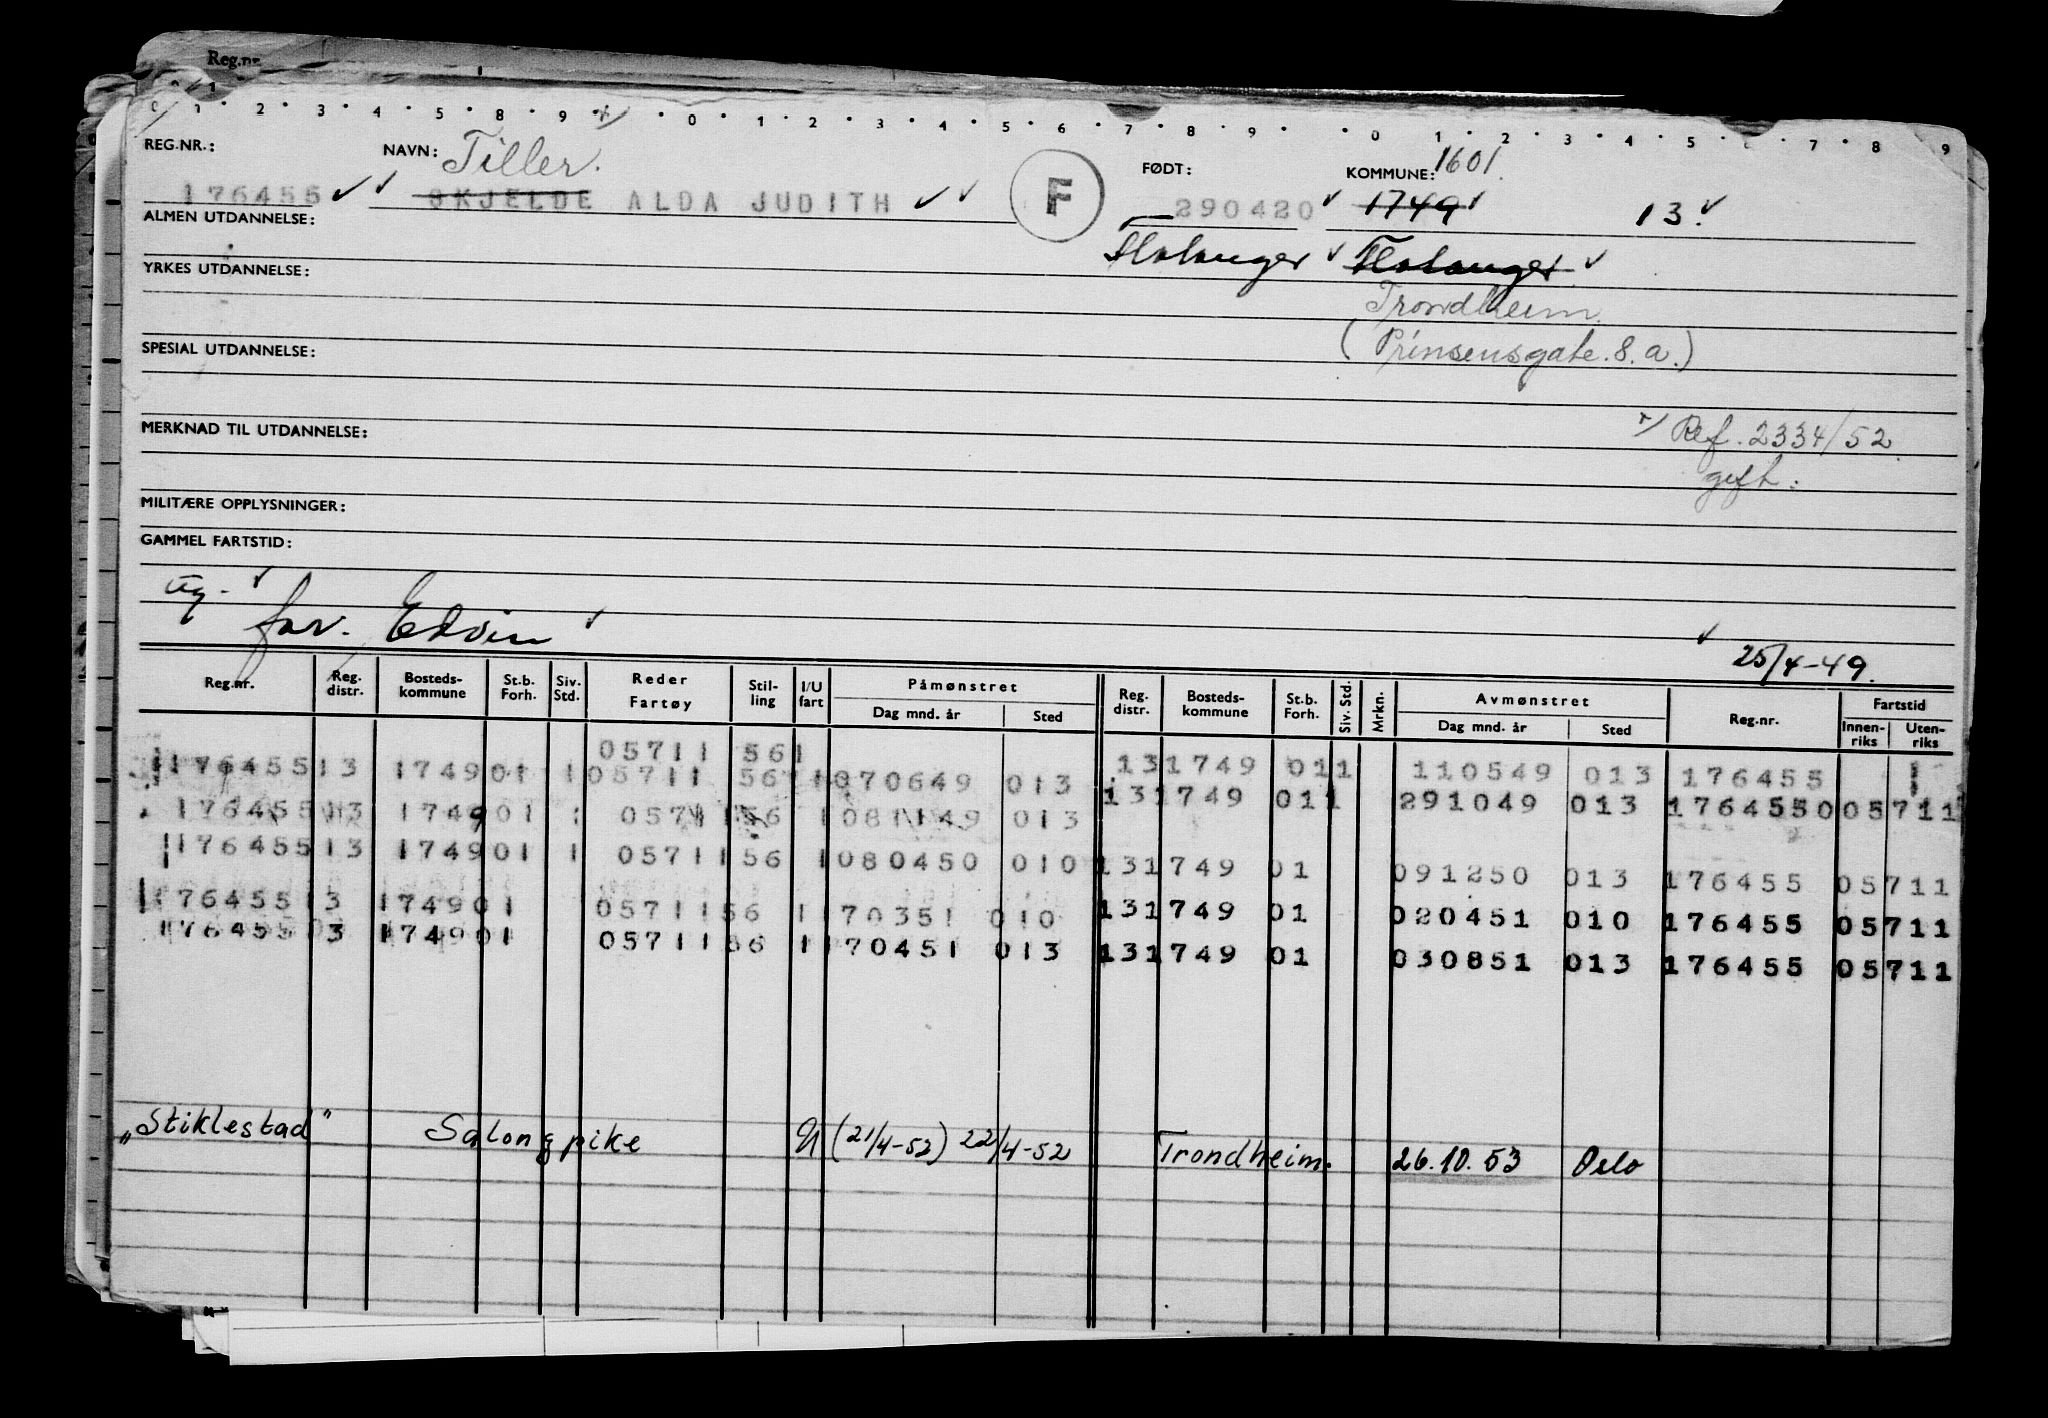 Reg.nr.
0 1 2 3 4 5 8 9 0 1 2 3 4 5 6 7 8 9 0 1 2 3 4 5 7 8 9
REG.NR.: NAVN: Tiller. F FØDT: KOMMUNE: 1601.
176455 SKJELDE ALDA JUDITH 290420 1749 13.
ALMEN UTDANNELSE:
Flatanger Flatanger
YRKES UTDANNELSE:
Trondheim.
(Prinsensgate. 8. a.)
SPESIAL UTDANNELSE:
x/ Ref. 2334/52
MERKNAD TIL UTDANNELSE:
gift.
MILITÆRE OPPLYSNINGER:
GAMMEL FARTSTID:
ug.
far. Edvin
25/4-49.
Reg.nr. Reg. distr. Bosteds- kommune St.b. Forh. Siv. Std. Reder Fartøy Stil- ling I/U fart Påmønstret Dag mnd. år Sted Reg. distr. Bosteds- kommune St.b. Forh. Siv. Std. Mrkn. Avmønstret Dag mnd. år Sted Reg.nr. Fartstid Innen- riks Uten- riks
05711 561 131749 011 110549 013 176455
176455 13 1749 01 1 05711 56 1 070649 013 131749 011 291049 013 1764550 05711
176455 13 1749 01 1 05711 56 1 081149 013
176455 13 1749 01 1 05711 56 1 080450 010 131749 01 091250 013 176455 05711
176455 13 1749 01 05711 56 1 170351 010 131749 01 020451 010 176455 05711
176455 13 1749 01 05711 56 1 170451 013 131749 01 030851 013 176455 05711
"Stiklestad" Salongpike U (21/4-52) 22/4-52 Trondheim. 26.10.53 Oslo